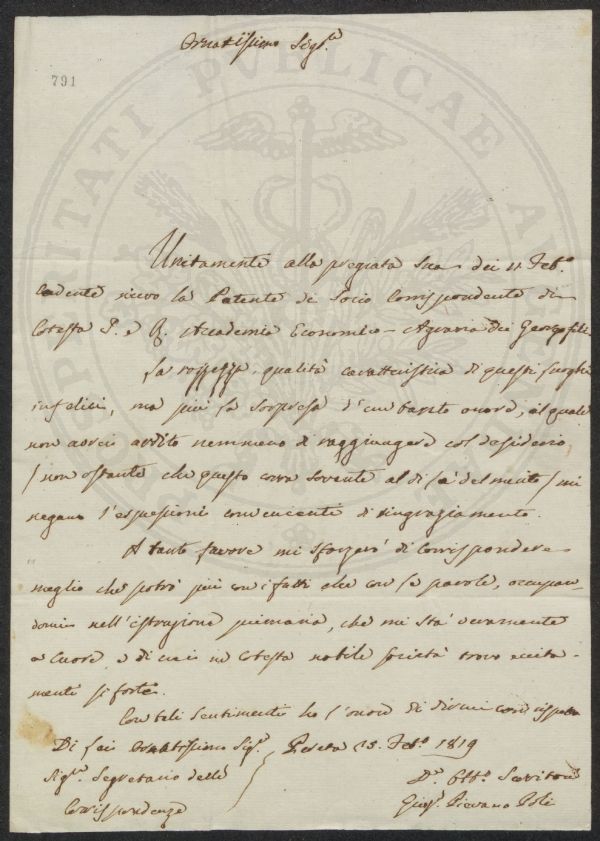 Ornatissimo Sig.re
791
PROSPERITATI PUBLICAE AUGENDAE
Unitamente alla pregiata Sua dei 11 Feb.o
cadente ricevo la Patente di Socio Corrispondente di
Cotesta I. e R. Accademia Economico-Agraria dei Georgofili
La rozzezza, qualità caratteristica di questi luoghi
infelici, ma più la sorpresa d'un tanto onore, il quale
non avrei ardito nemmeno di raggiungere col desiderio
/ non ostante che questo corra sovente al di là del merito / mi
negano l'espressioni convenienti di ringraziamento.
A tanto favore mi sforzerò di corrispondere
meglio che potrò più con i fatti che con le parole, occupan-
domi nell'istruzione primaria, che mi sta veramente
a cuore, e di cui in cotesta nobile società trovo eccita-
menti sì forti.
Con tali sentimenti ho l'onore di dirmi con rispetto
Di Lei Ornatissimo Sig.re Pereta 25. Feb.o 1819
Sig.re Segretario delle D.mo Obb.o Servitore
Corrispondenze Pievano Poli